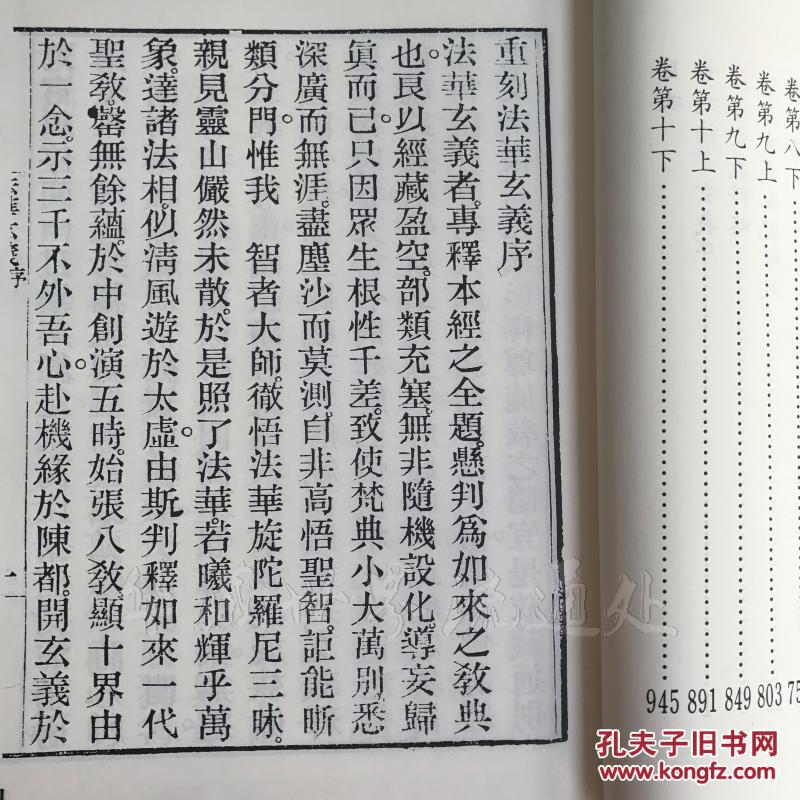 重刻法華玄義序
法華玄義者。專釋本經之全題。懸判為如來之教典
也。良以經藏盈空。部類充塞。無非隨機設化。導妄歸
眞而已。只因眾生根性千差。致使梵典小大萬別。悉
深廣而無涯。盡塵沙而莫測。自非高悟聖智。詎能晰
類分門。惟我　智者大師。徹悟法華旋陀羅尼三昧。
親見靈山儼然未散。於是照了法華。若曦和輝乎萬
象。達諸法相。似淸風遊於太虛。由斯判釋如來一代
聖教。罄無餘蘊。於中創演五時。始張八教。顯十界由
於一念。示三千不外吾心。赴機緣於陳都。開玄義於
法華玄義序
卷第八下
卷第九上……803
卷第九下……849
卷第十上……891
卷第十下……945
孔夫子旧书网
www.kongfz.com